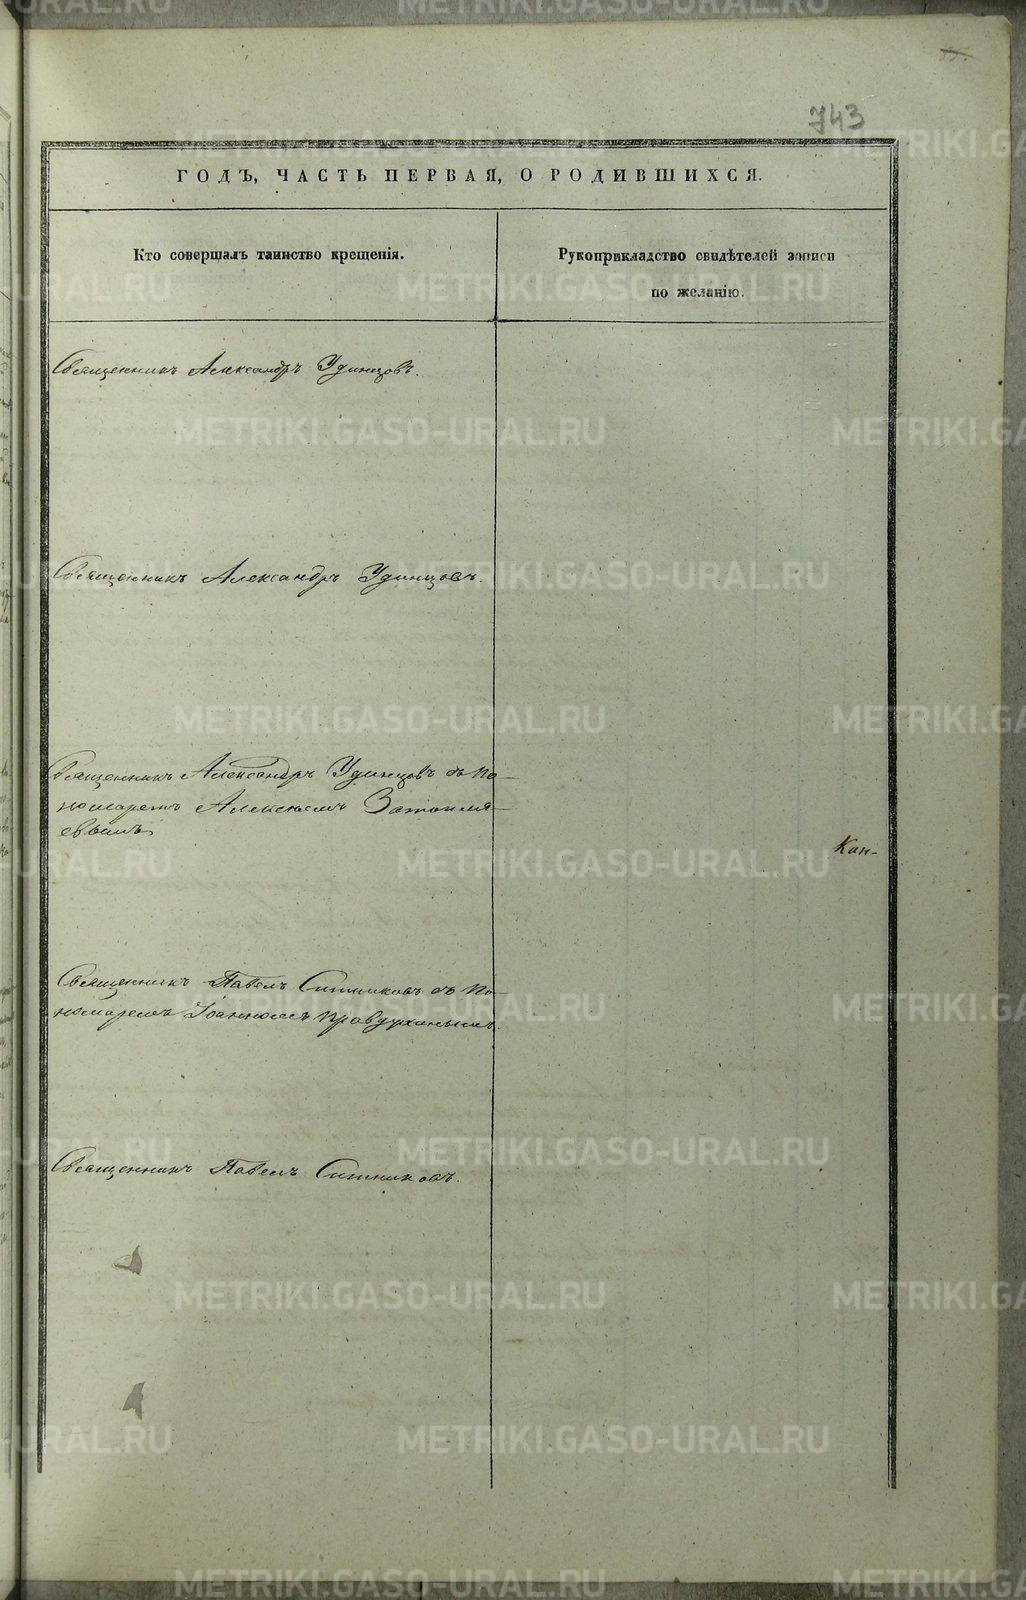 743
ГОДЪ, ЧАСТЬ ПЕРВАЯ, О РОДИВШИХСЯ.
Кто совершалъ таинство крещенія.
Рукоприкладство свидѣтелей записи
по желанію.
Священникъ Александръ Удинцовъ.
Священникъ Александръ Удинцовъ.
Священникъ Александръ Удинцовъ съ по-
номаремъ Алексѣемъ
Кан-
Священникъ Павелъ Ситниковъ съ по-
номаремъ Іоанномъ
Священникъ Павелъ Ситниковъ.
METRIKI.GASO-URAL.RU